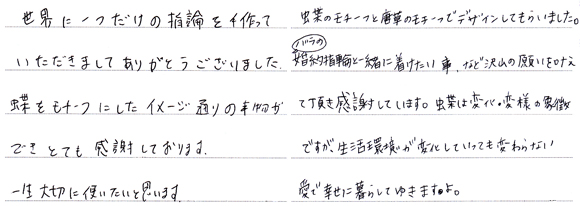 世界に一つだけの指論を作って
いただきましてありがとうございました。
蝶をモチーフにしたイメージ通りの本物が
でき とても 感謝しております。
一生大切に使いたいと思います。
蝶のモチーフと唐草のモチーフでデザインしてもらいました。
バラの
婚約指輪と一緒に着けたい事、など沢山の願いを叶え
て頂き感謝しています。蝶は変化・変様の象徴
ですが、生活環境が変化していっても変わらない
愛で幸せに暮らしてゆきますよ。